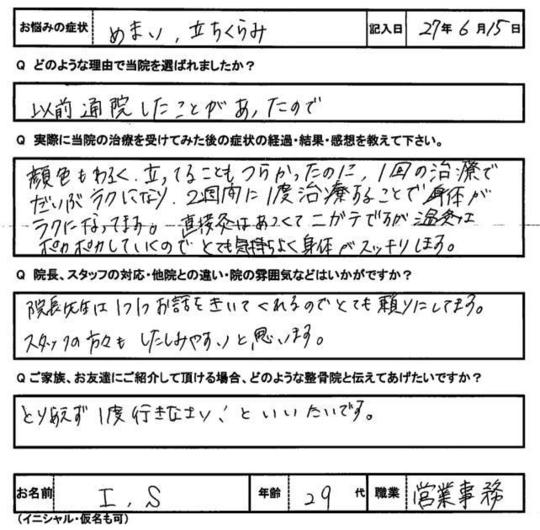 お悩みの症状 めまい、立ちくらみ 記入日 27年6月15日
Q どのような理由で当院を選ばれましたか？
以前通院したことがあったので
Q 実際に当院の治療を受けてみた後の症状の経過・結果・感想を教えて下さい。
顔色もわるく、立ってることもつらかったのに、1回の治療で
だいぶラクになり、2週間に1度治療することで身体が
ラクになってます。直接灸はあつくてニガテですが温灸は
ポカポカしていくのでとても気持ちよく身体がスッキリします。
Q 院長、スタッフの対応・他院との違い・院の雰囲気などはいかがですか？
院長先生は1つ1つお話をきいてくれるのでとても頼りにしてます。
スタッフの方々もしたしみやすいと思います。
Q ご家族、お友達にご紹介して頂ける場合、どのような整骨院と伝えてあげたいですか？
とりあえず1度行きなさい！といいたいです。
お名前 I．S 年齢 29 代 職業 営業事務
（イニシャル・仮名も可）